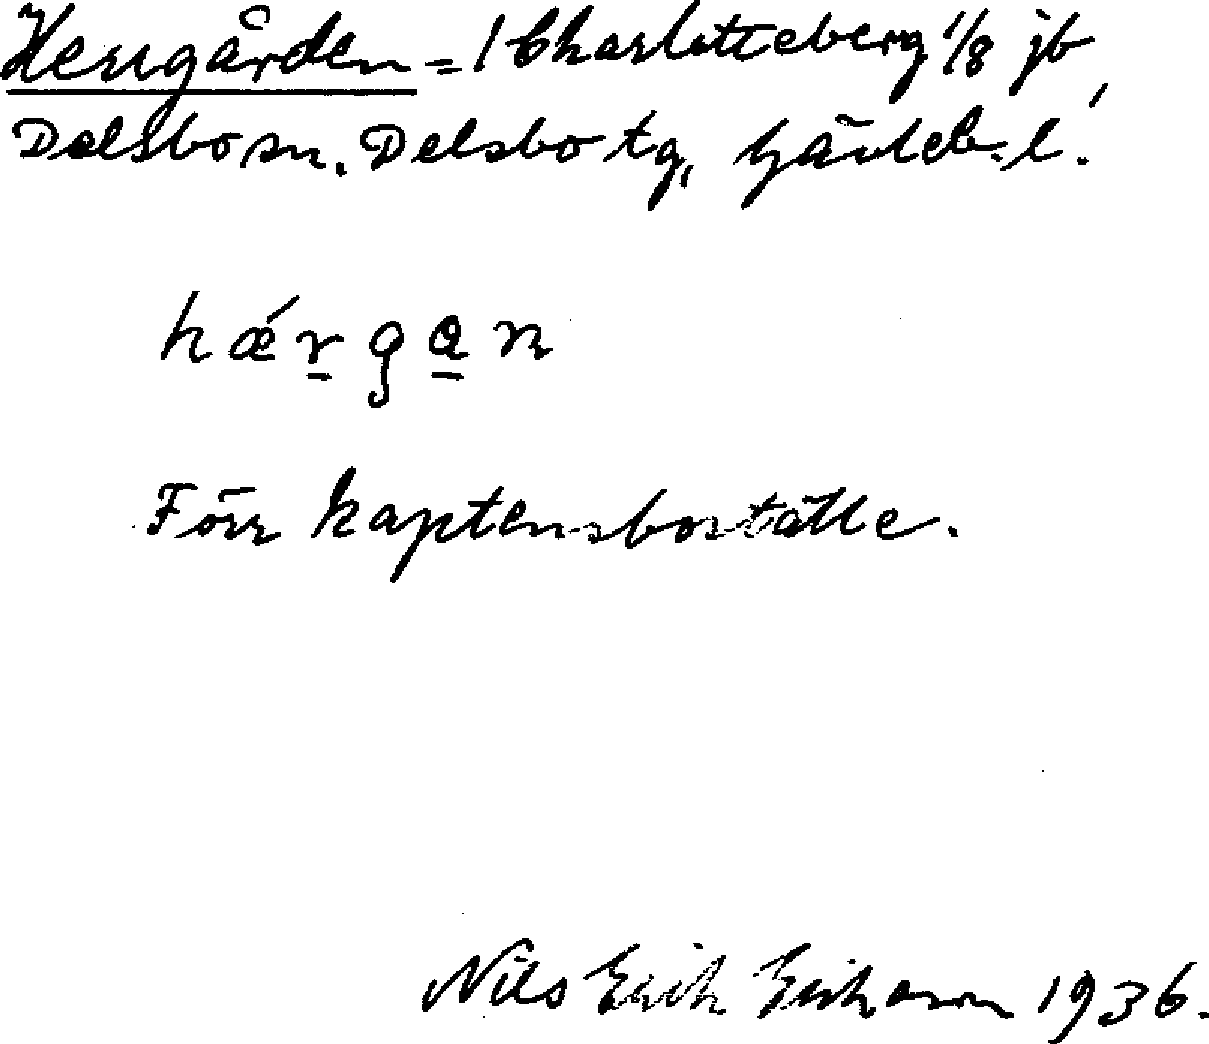 Herrgården = 1 Charlotteberg 1/8 jb,
Delsbo sn. Delsbo tg, Gävleb. l.
hǽrgan
Förr kaptensboställe.
Nils Erich Erikson 1936.